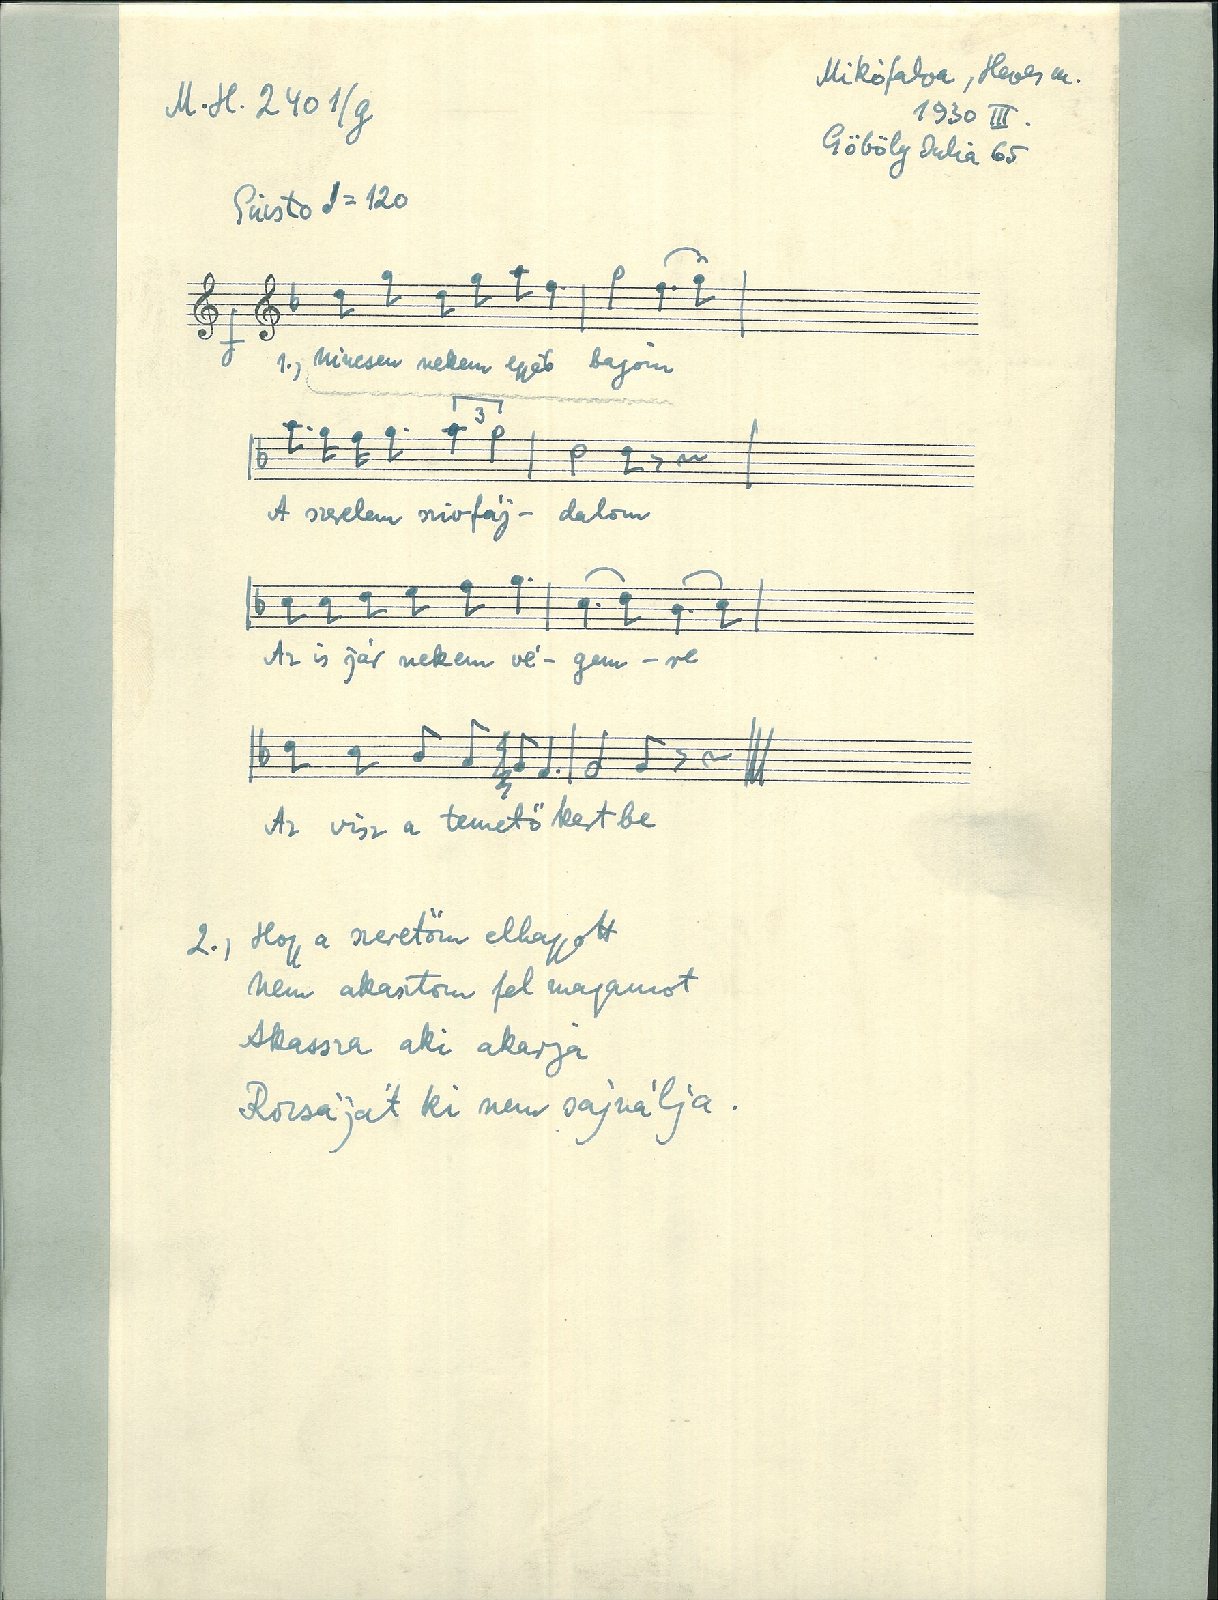 M.H. 2401/g
Mikófalva, Heves m.
1930 III.
Göböly Julia 65
Giusto = 120
1., Nincsen nekem egyéb bajom
3
A szerelem szivfáj- dalom
Az is jár nekem vé- gem -re
Az visz a temető kertbe
2., Hogy a szeretőm elhagyott
Nem akasztom fel magamot
Akassza aki akarja
Rozsáját ki nem sajnálja.